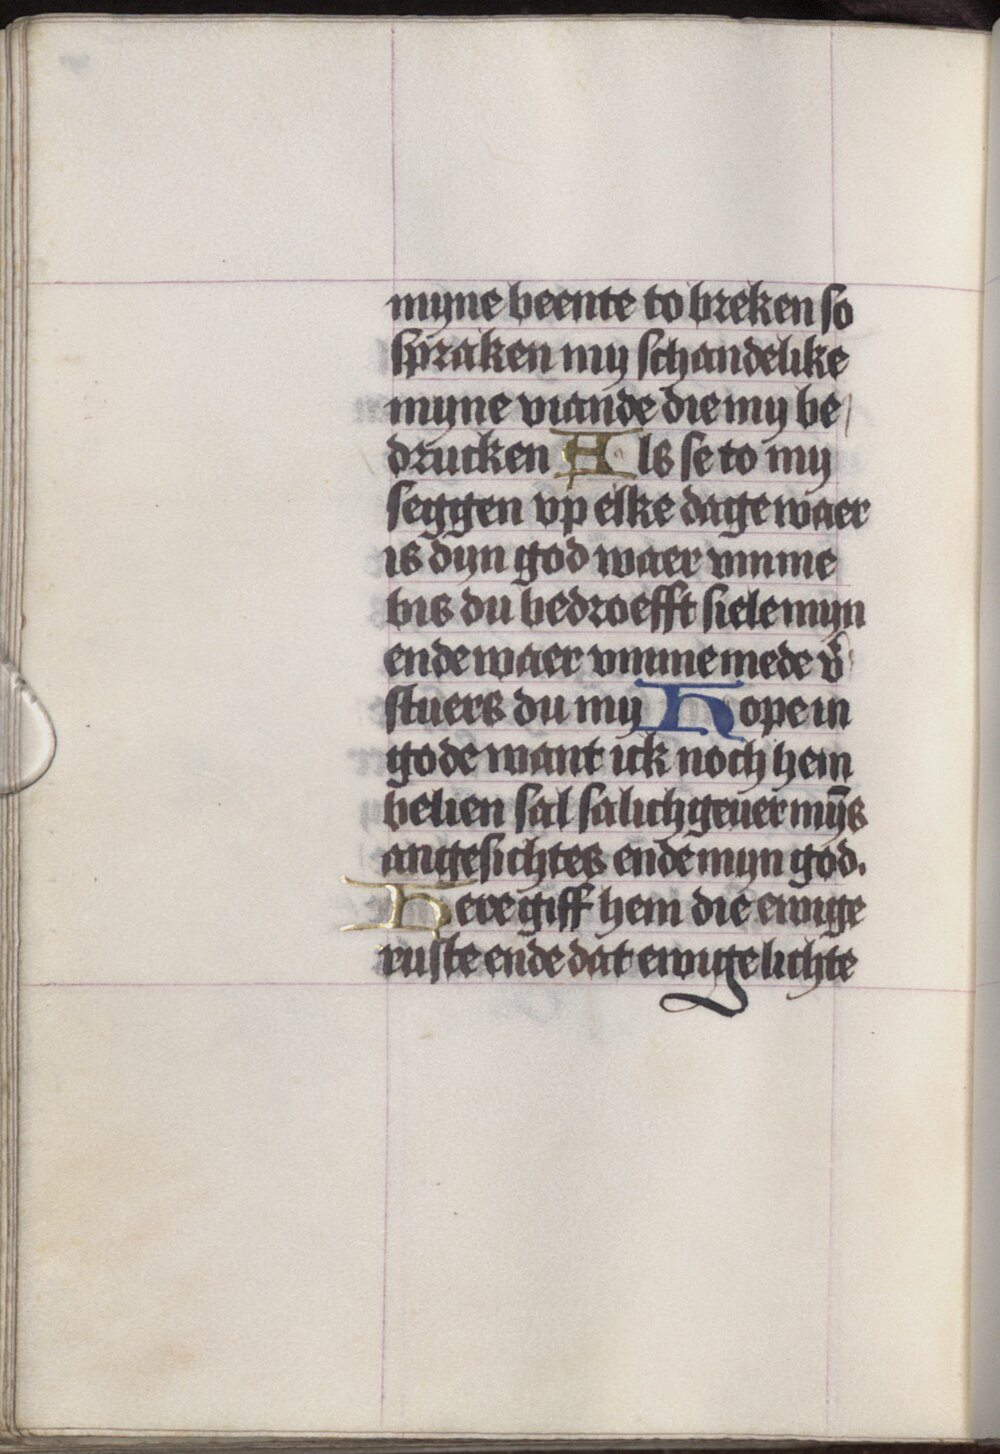 myne beente to breken so
spraken my schandelike
myne viande die my be/
drucken Als se to my
seggen vp elke dage waer
is dyn god waer vmme
bis du bedroefft siele myn
ende waer vmme mede v̄
stuers du my Hope in
gode want ick noch hem
belien sal salichgeuer myn̄s
angesichtes ende myn god.
Here giff hem die ewige
ruste ende dat ewige lichte